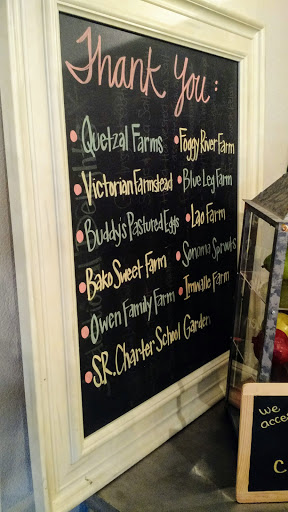 Thank You:
Quetzal Farms
Victorian Farmstead
Buddy's Pastured Eggs
Bako Sweet Farm
Owen Family Farm
S.R. Charter School Garden
Foggy River Farm
Blue Leg Farm
Lao Farm
Sonoma Sprouts
Imwalle Farm
We
acce
C